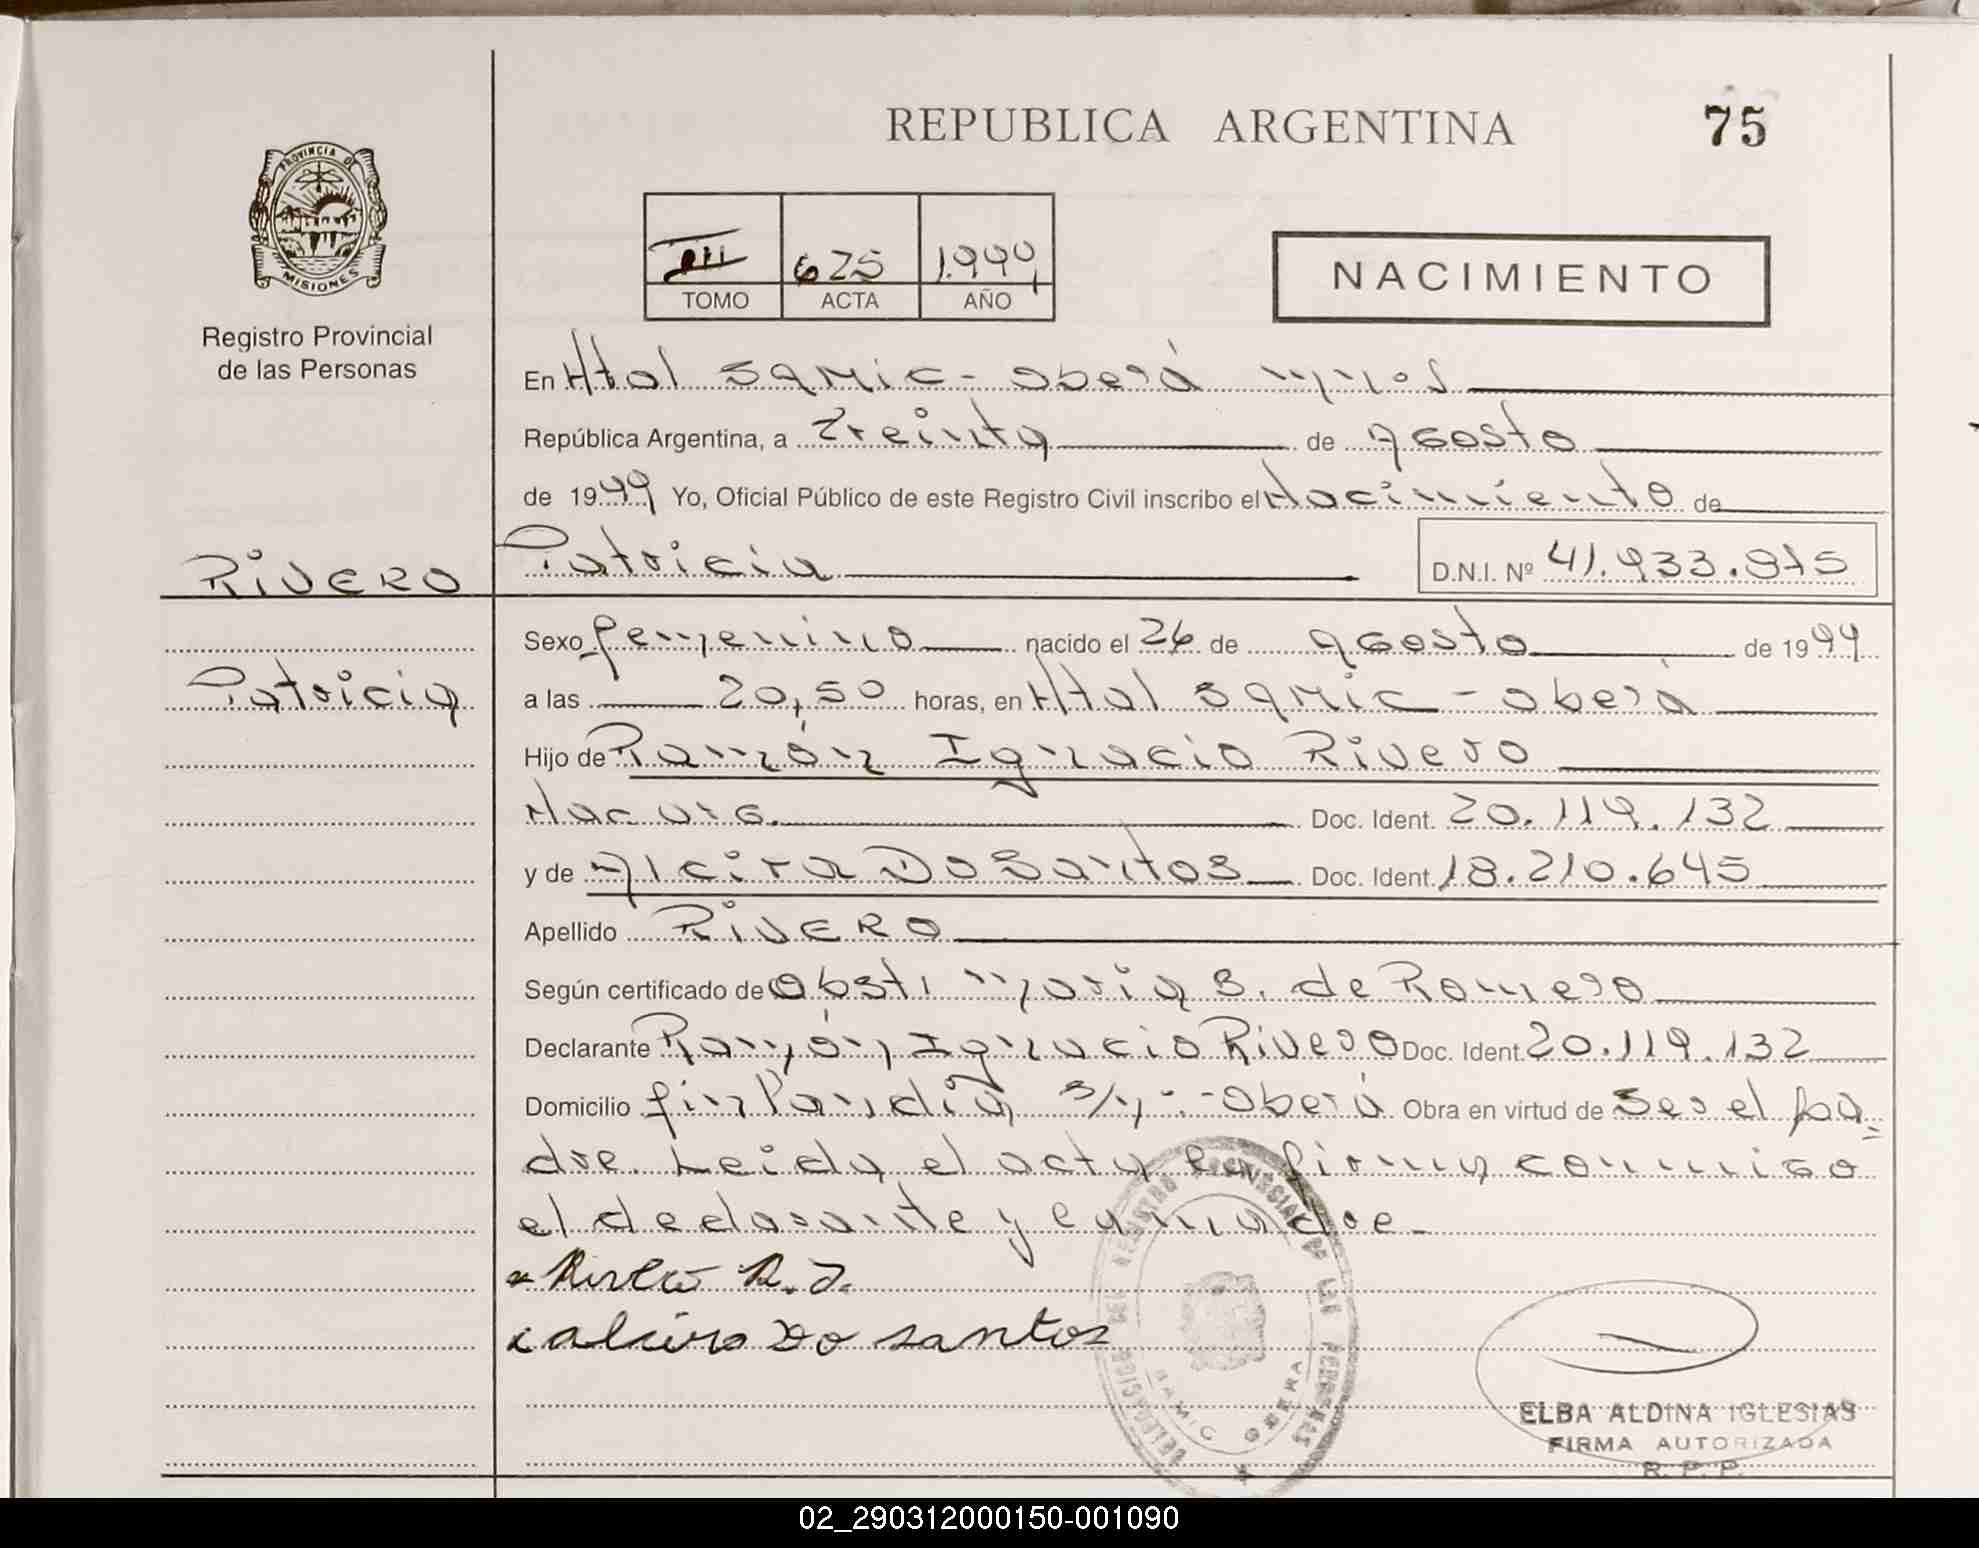 REPUBLICA ARGENTINA
75
PROVINCIA DE
MISIONES
Registro Provincial
de las Personas
III 625 1.999
TOMO ACTA AÑO
NACIMIENTO
En Htal SAMIC - Oberá Mnes
República Argentina, a Treinta de Agosto
de 1999 Yo, Oficial Público de este Registro Civil inscribo el Nacimiento de
RIVERO Patricia D.N.I. Nº 41.933.975
Sexo femenino nacido el 26 de Agosto de 1999
Patricia a las 20,50 horas, en Htal SAMIC - Oberá
Hijo de Ramón Ignacio Rivero
Doc. Ident. 20.119.132
y de Alcira Do Santos Doc. Ident. 18.210.645
Apellido RIVERO
Según certificado de Obst. Maria S. de Romero
Declarante Ramón Ignacio Rivero Doc. Ident. 20.119.132
Domicilio finlandia s/n - Oberá Obra en virtud de ser el pa=
dre. Leida el acta la firma conmigo
el declarante y la madre-
Rivero R. I.
alcira Do santos
DELEGACION DEL REGISTRO PROVINCIAL DE LAS PERSONAS
SAMIC OBERA
ELBA ALDINA IGLESIAS
FIRMA AUTORIZADA
R. P. P.
02_290312000150-001090